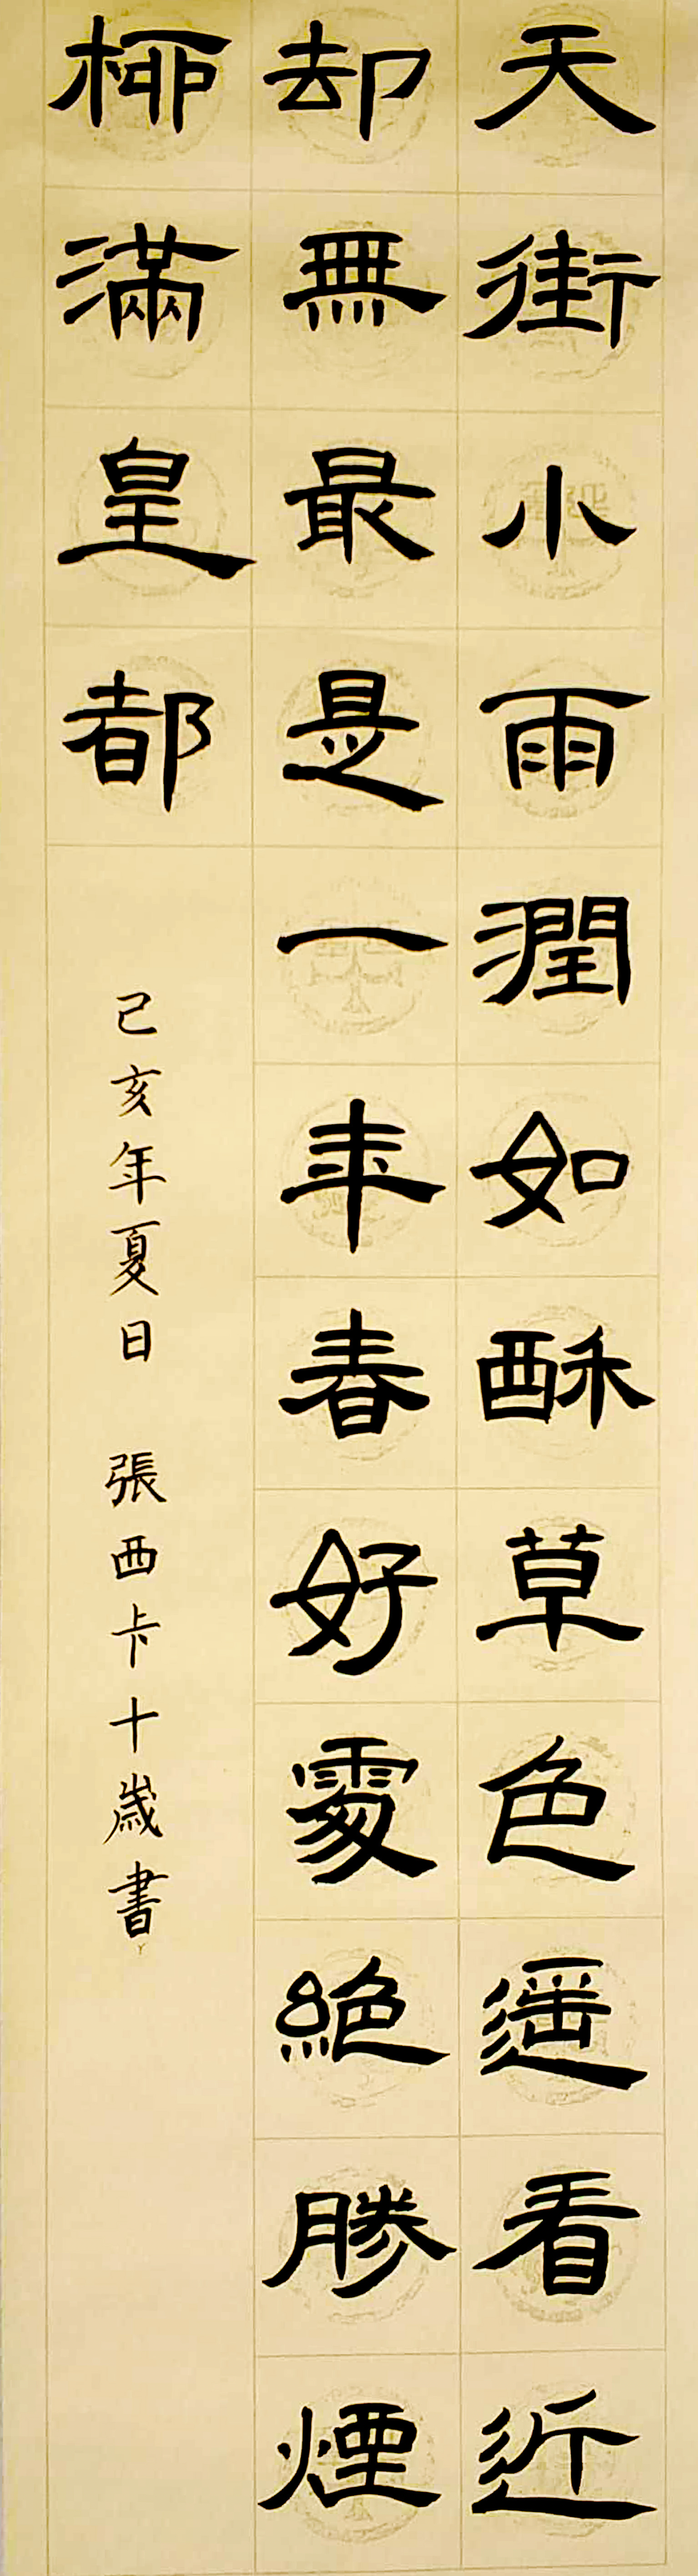 天街小雨潤如酥草色遥看近
却無最是一年春好處絕勝煙
柳滿皇都
己亥年夏日 張西卡十歲書